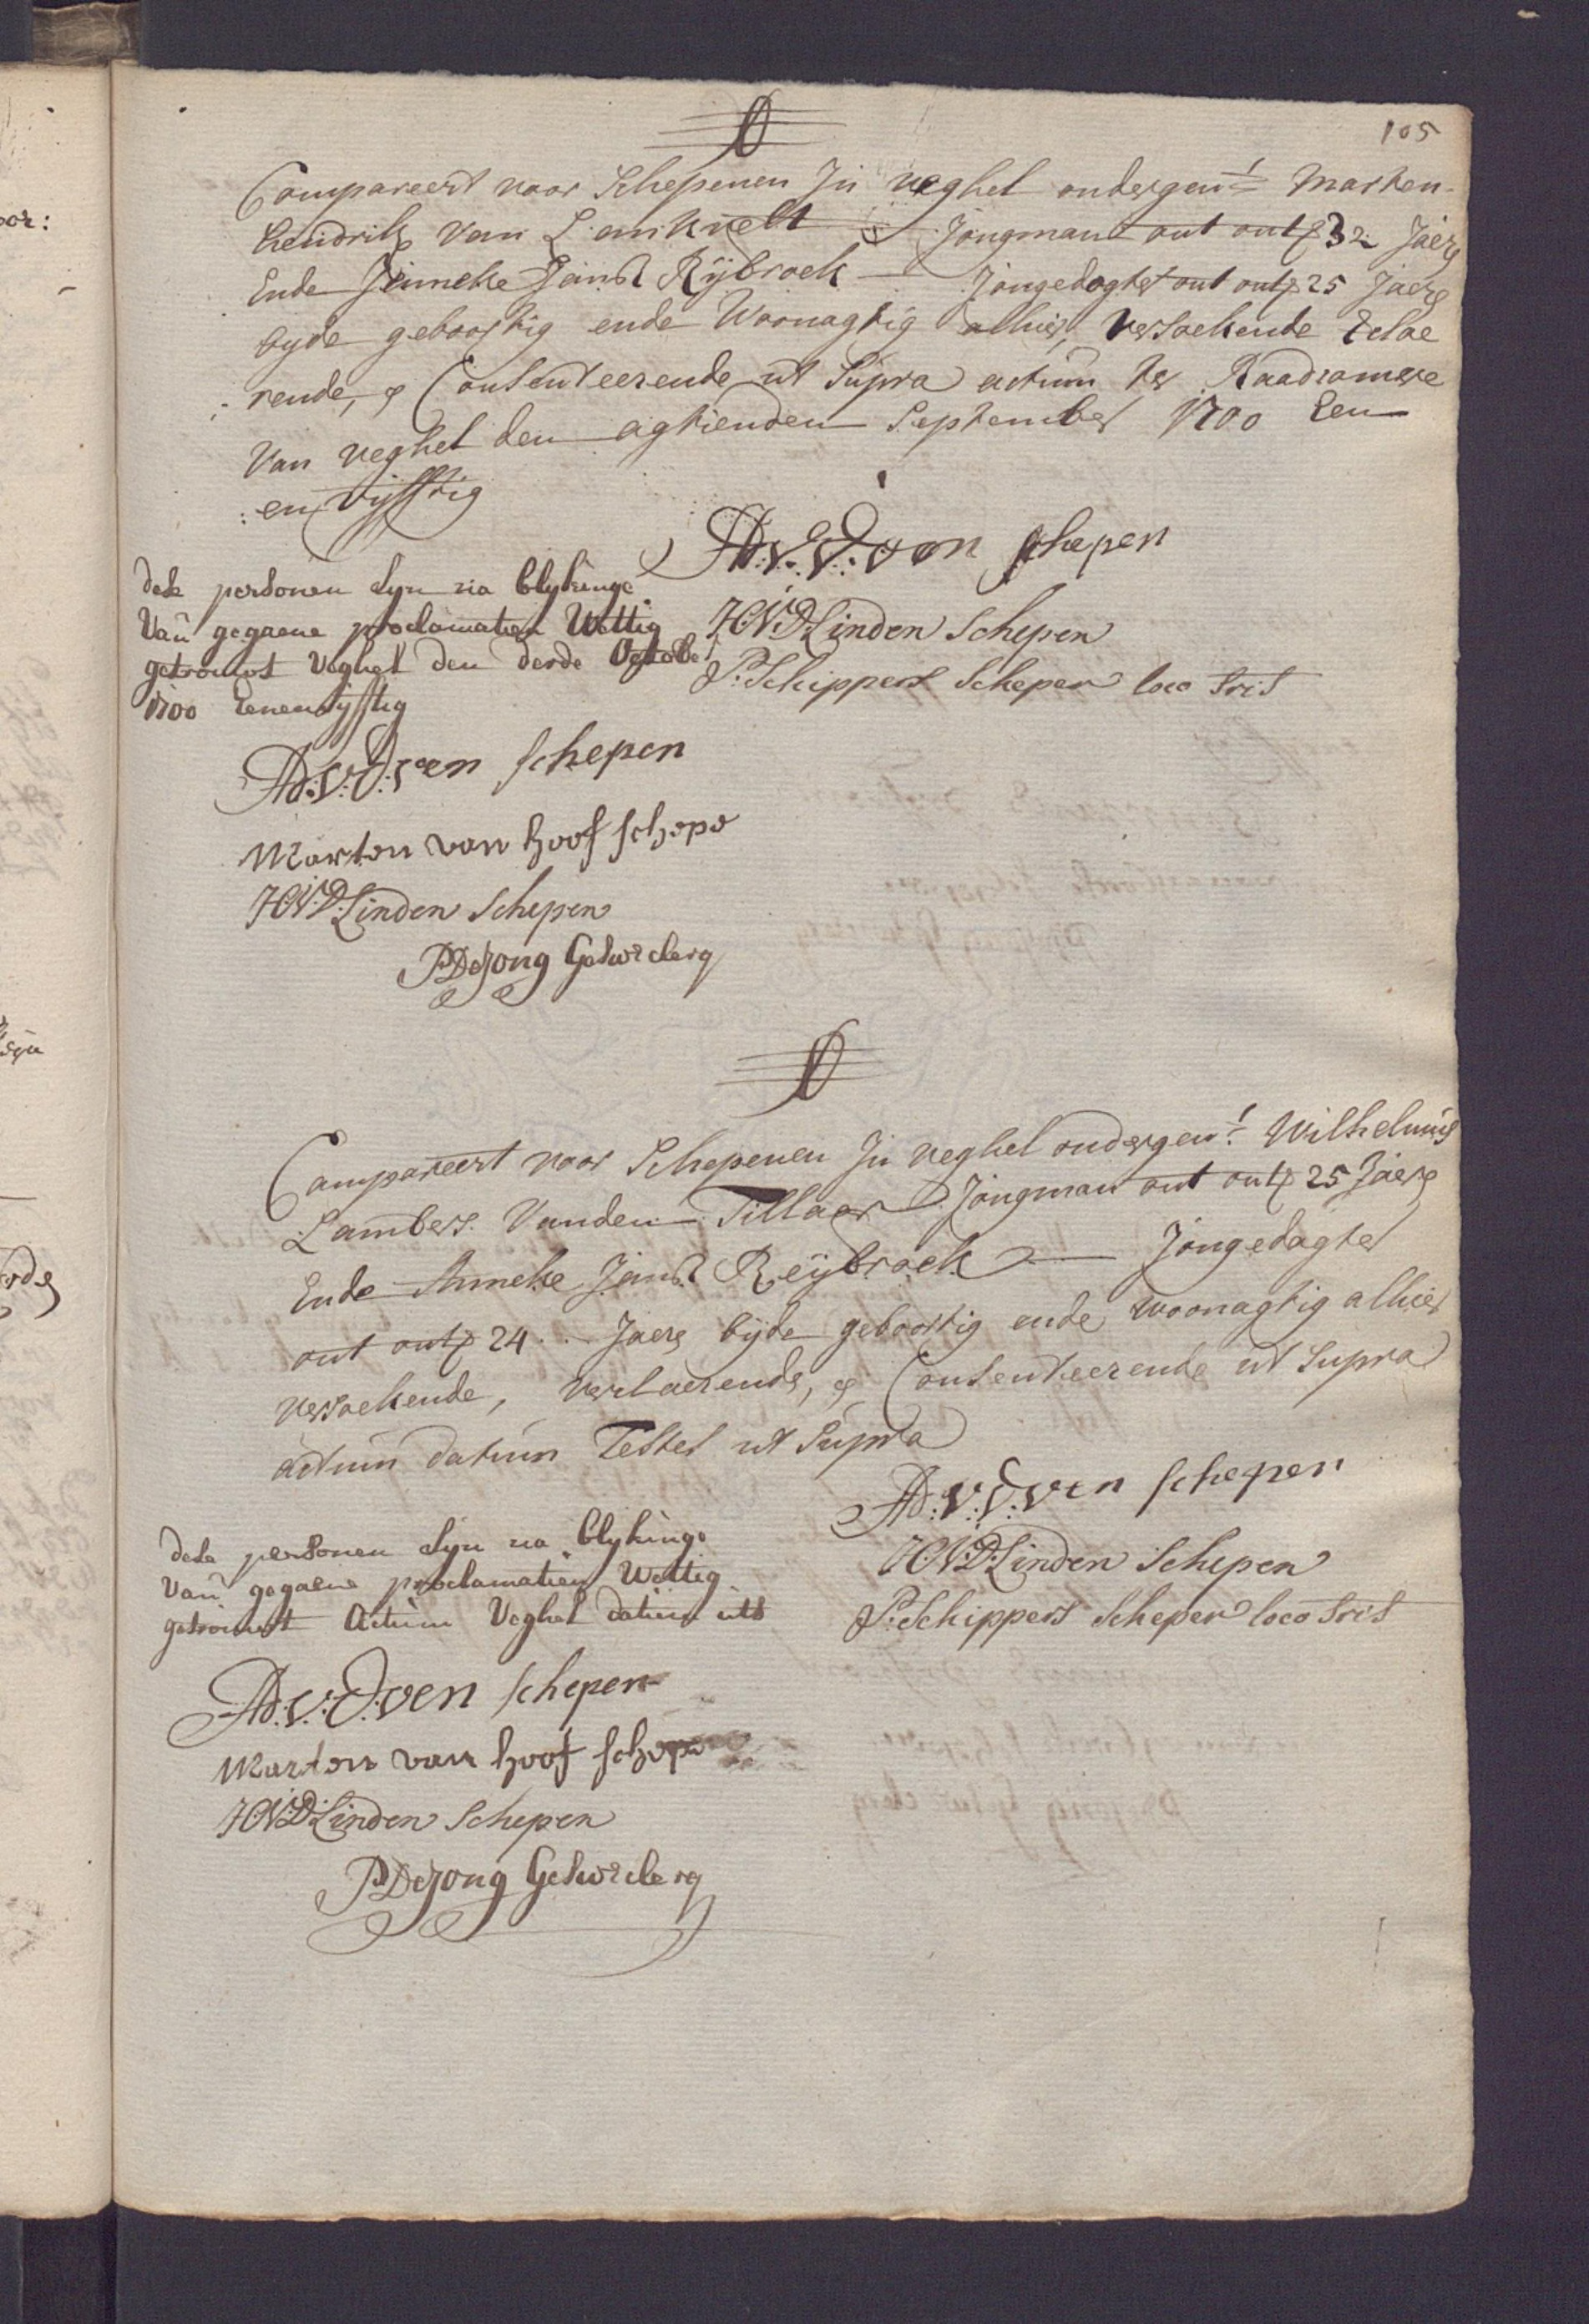 105
Compareert voor Schepenen In veghel ondergent Marten
hendriks van Lankvelt Jongman out ontr 32 Jaere
Ende Jenneke Jans Rijbroek Jongedogter out ontr 25 Jaere
byde geboortig ende Woonagtig alhier, Versoekende Eclae
rende, & Consenteerende ut Supra actum ter Raadcamere
Van veghel den agtienden September 1700 Een
en vijfftig
Ad: V: D: ven schepen
H V D Linden Schepen
P: Schippers Schepen loco Sris
dese persoonen syn na blykinge
Van gegaene proclamatien Wettig
getrouwt Veghel den derde October
1700 Eenenvijftig
Ad: V: D: ven schepen
Marten van hoof schepe
H V D Linden Schepen
P De Jong Geswrclerq
Compareert voor Schepenen In veghel ondergent Wilhelmus
Lambers Vanden Tillaer Jongman out ontr 25 Jaere
Ende Anneke Jans Reijbroek Jongedagter
out ontr 24 Jaere bijde geboortig ende woonagtig alhier
versoekende, verclaerende, & Consenteerende ut Supra
actum datum Testes ut Supra
Ad: V: D: ven schepen
H V D Linden Schepen
P: Schippers Schepen loco Sris
dese persoonen syn na blykinge
Van gegaene proclamatien Wettig
getrouwt Actum Veghel datum uts
Ad: V: D: ven schepen
Marten van hoof schepe
H V D Linden Schepen
P De Jong Geswrclerq